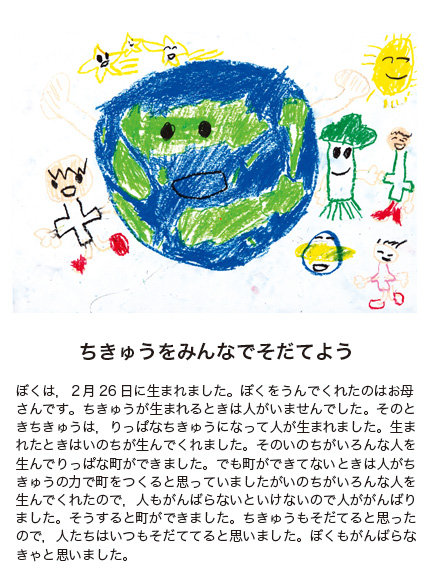 ちきゅうをみんなでそだてよう
ぼくは，２月26日に生まれました。ぼくをうんでくれたのはお母
さんです。ちきゅうが生まれるときは人がいませんでした。そのと
きちきゅうは，りっぱなちきゅうになって人が生まれました。生ま
れたときはいのちが生んでくれました。そのいのちがいろんな人を
生んでりっぱな町ができました。でも町ができてないときは人がち
きゅうの力で町をつくると思っていましたがいのちがいろんな人を
生んでくれたので，人もがんばらないといけないので人ががんばり
ました。そうすると町ができました。ちきゅうもそだてると思った
ので，人たちはいつもそだててると思いました。ぼくもがんばらな
きゃと思いました。